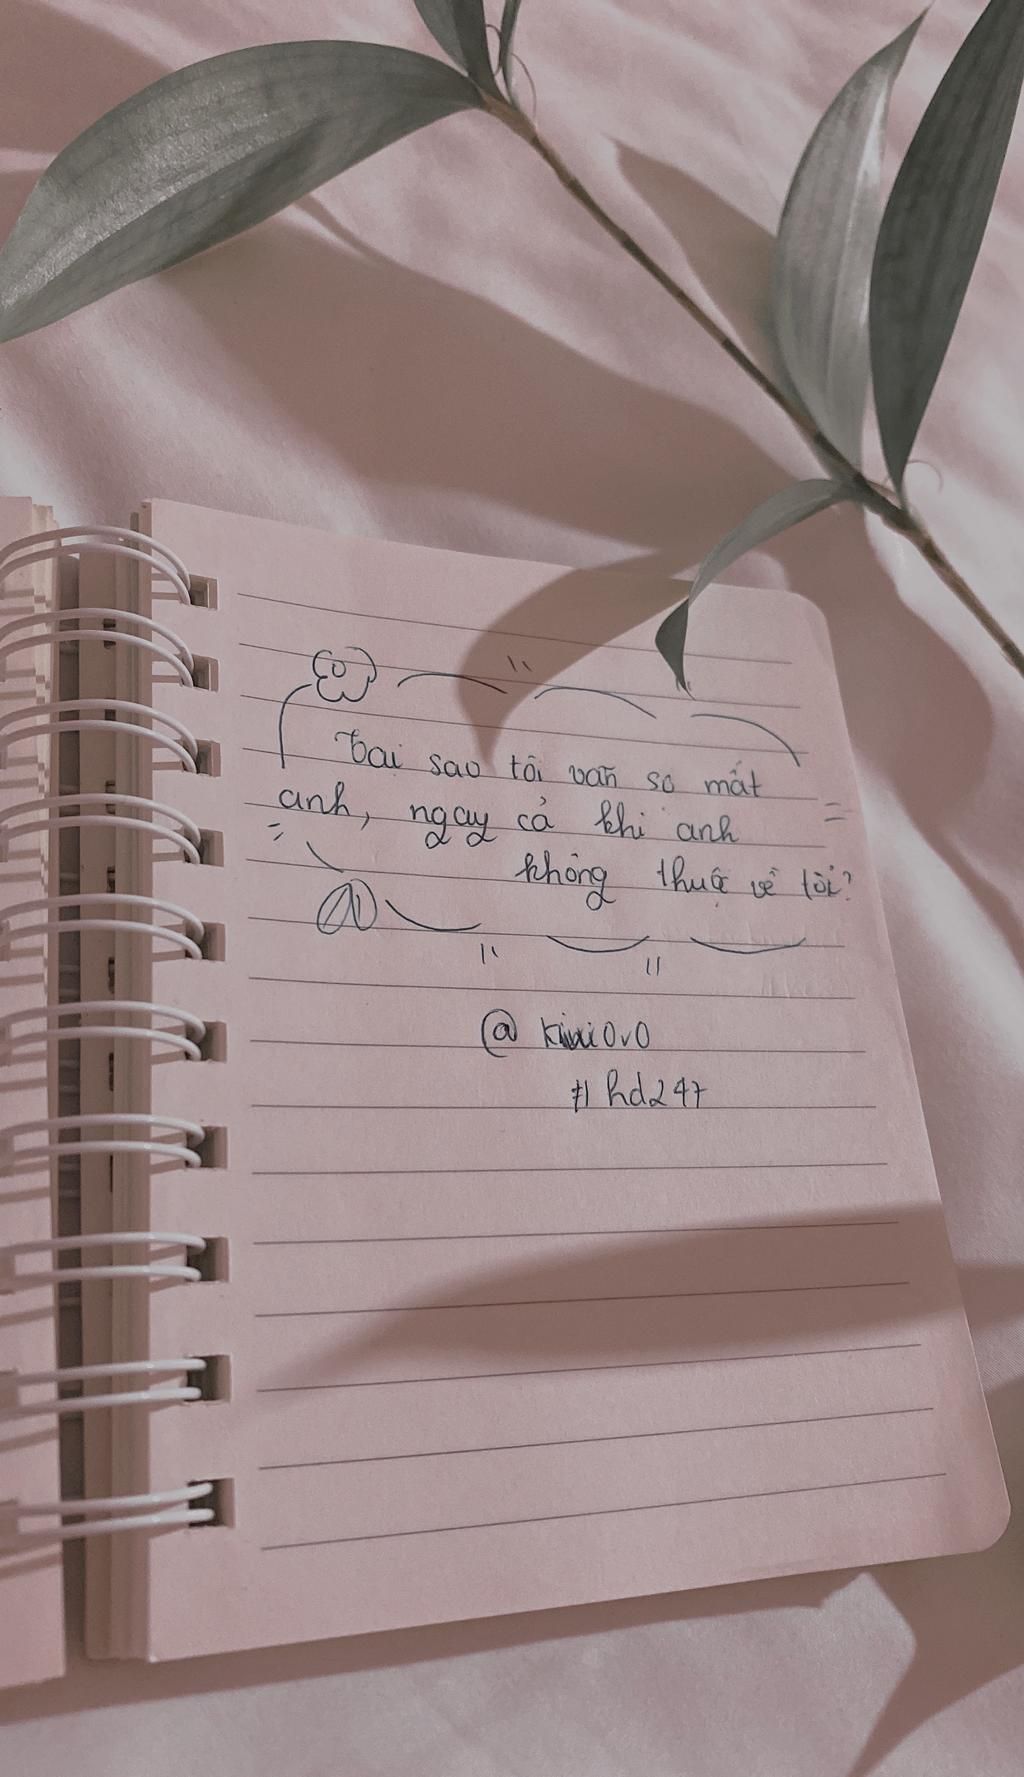 Tại sao tôi vẫn sợ mất
anh, ngay cả khi anh
không thuộc về tôi?
@ kiwi0v0
#hd247